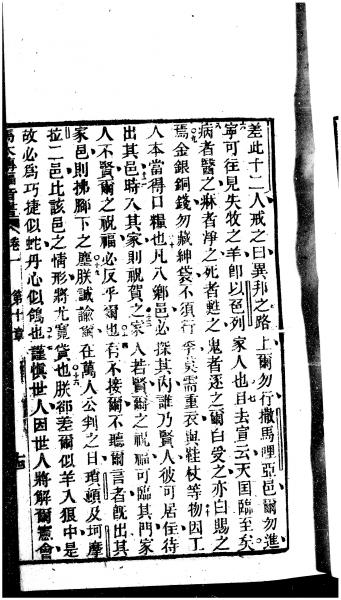 差此十二人戒之曰異邦之路上爾勿行撒馬哩亞邑爾勿進
寧可往見失牧之羊卽以色列家人也且去宣云天国臨至矣
病者醫之麻者淨之死者甦之鬼者逐之爾白受之亦白賜之
焉金銀銅錢勿藏紳袋不須行李莫需重衣與鞋杖等物因工
人本當得口糧也凡入鄉邑必探其內誰乃賢人彼可居住待
出其邑時入其家則祝賀之家人若賢爾之祝福可臨其門家
人不賢爾之祝福必反乎爾也有不接爾不聽爾言者旣出其
家邑則拂腳下之塵朕誠諭爾在萬人公判之日瑣頓及坷摩
拉二邑比該邑之情形將尤寬貸也朕卻差爾似羊入狼中是
故必爲巧捷似蛇丹心似鴿也謹愼世人因世人將解爾憲會
卷一 第十章